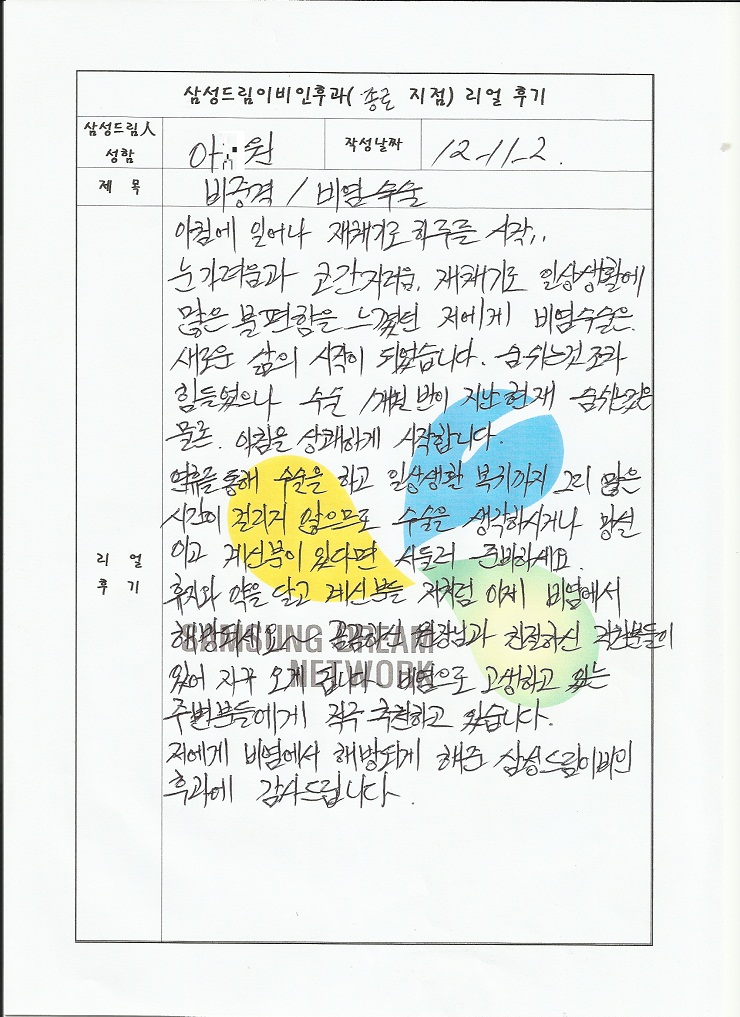 삼성드림이비인후과( 종로 지점) 리얼 후기
삼성드림人
성함
원
작성날짜
12_11_2.
제 목
비중격 / 비염수술
아침에 일어나 재채기로 하루를 시작..
눈가려움과 코간지러움, 재채기로 일상생활에
많은 불편함을 느꼈던 저에게 비염수술은
새로운 삶의 시작이 되었습니다. 숨쉬는것 조차
힘들었으나 수술 1개월 반이 지난 현재 숨쉬는것은
물론. 아침을 상쾌하게 시작합니다.
통해 수술을 하고 일상생활 복귀까지 그리 많은
시간이 걸리지 않으므로 수술을 생각하시거나 망설
이고 계신분이 있다면 서둘러 준비하세요.
휴지와 약을 달고 계신분들 저처럼 이제 비염에서
해방되세요~ 꼼꼼하신 원장님과 친절하신 직원분들이
있어 자꾸 오게 됩니다 비염으로 고생하고 있는
주변분들에게 적극 추천하고 있습니다.
저에게 비염에서 해방되게 해준 삼성드림이비인
후과에 감사드립니다.
리 얼
후 기
SAMSUNG DREAM
NETWORK